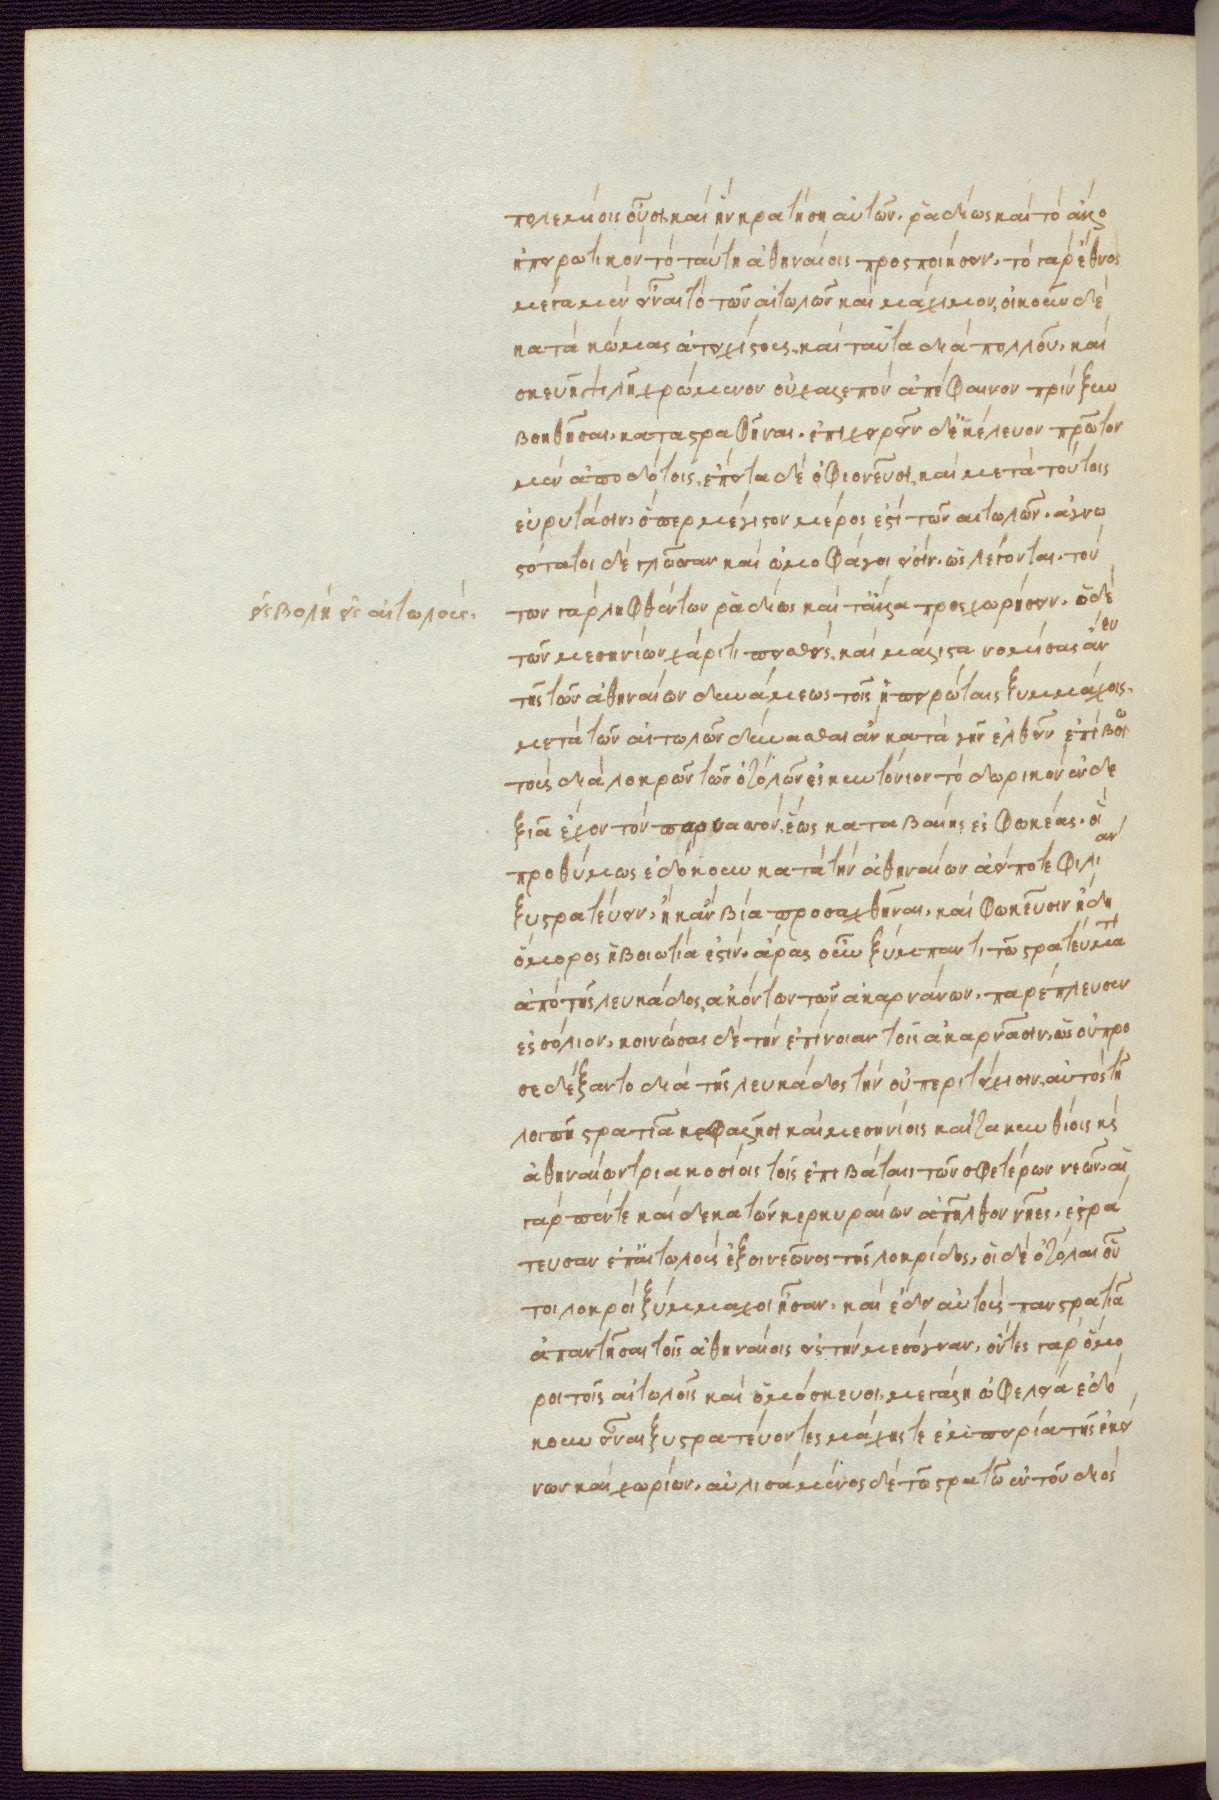 πολεμίοις οὖσι, καὶ ἢν κρατήση αὐτῶν, ῥαδίως καὶ τὸ ἄλλο
ἠπειρωτικὸν τὸ ταύτη ἀθηναίοις προσποιήσειν. τὸ γὰρ ἔθνος
μέγα μὲν εἶναι τὸ τῶν αἰτωλῶν καὶ μάχιμον, οἰκοῦν δὲ
κατὰ κώμας ἀτειχίστους, καὶ ταῦτα διὰ πολλοῦ, καὶ
σκευῆ ψιλῆ χρώμενον οὐ χαλεπὸν ἀπέφαινον πρὶν ξυμ
βοηθῆσαι, καταστραφῆναι. ἐπιχειρεῖν δ' ἐκέλευον πρῶτον
μὲν ἀποδότοις, ἔπειτα δὲ ὀφιονεῦσι, καὶ μετὰ τούτοις
εὐρυτάσιν, ὅπερ μέγιστον μέρος ἐστὶ τῶν αἰτωλῶν. ἀγνω
στότατοι δὲ γλῶσσαν καὶ ὠμοφάγοι εἰσὶν, ὡς λέγονται. τού
ἐσβολὴ ἐς αἰτωλούς.
των γὰρ ληφθέντων ῥαδίως καὶ τἄλλα προσχωρήσειν. ὁ δὲ
τῶν μεσηνίων χάριτι πεισθεὶς, καὶ μάλιστα νομίσας ἄνευ
τῆς τῶν ἀθηναίων δυνάμεως τοῖς ἠπειρώταις ξυμμάχοις
μετὰ τῶν αἰτωλῶν δύνασθαι ἂν κατὰ γῆν ἐλθεῖν ἐπὶ βοιω
τοὺς διὰ λοκρῶν τῶν ὀζολῶν ἐς κυτίνιον τὸ δωρικὸν ἐν δε
ξιᾶ ἔχων τὸν παρνασὸν, ἕως καταβαίης ἐς φωκέας. οἳ
προθύμως ἐδόκουν κατὰ τὴν ἀθηναίων ἀεί ποτε φιλίαν
ξυστρατεύειν, ἢ κἂν βία προσαχθῆναι. καὶ φωκεῦσιν ἤδη
ὅμορος ἡ βοιωτία ἐστὶν. ἄρας οὖν ξύμπαντι τῶ στρατεύματι
ἀπὸ τῆς λευκάδος, ἀκόντων τῶν ἀκαρνάνων, παρέπλευσεν
ἐς σόλιον, κοινώσας δὲ τὴν ἐπίνοιαν τοῖς ἀκαρνᾶσιν, ὡς οὐ προ
σεδέξαντο διὰ τῆς λευκάδος τὴν οὐ περιτείχισιν, αὐτὸς τῆ
λοιπῆ στρατιᾶ κεφαλλῆσι καὶ μεσηνίοις καὶ ζακυνθίοις κὶ
ἀθηναίων τριακοσίοις τοῖς ἐπιβάταις τῶν σφετέρων νεῶν, αἱ
γὰρ πέντε καὶ δέκα τῶν κερκυραίων ἀπῆλθον νῆες, ἐστρά
τευσεν ἐπ' αἰτωλοὺς ἐξ οἰνεῶνος τῆς λοκρίδος. οἱ δὲ ὀζόλαι οὗ
τοι λοκροὶ ξύμμαχοι ἦσαν, καὶ ἔδει αὐτοὺς πανστρατιᾶ
ἀπαντῆσαι τοῖς ἀθηναίοις ἐς τὴν μεσόγειαν. ὄντες γὰρ ὅμο
ροι τοῖς αἰτωλοῖς καὶ ὁμόσκευοι, μεγάλη ὠφελεία ἐδό
κουν εἶναι ξυστρατεύοντες μάχης τε ἐμπειρία τῆς ἐκεί
νων καὶ χωρίων. αὐλισάμενος δὲ τῶ στρατῶ ἐν τοῦ διὸς